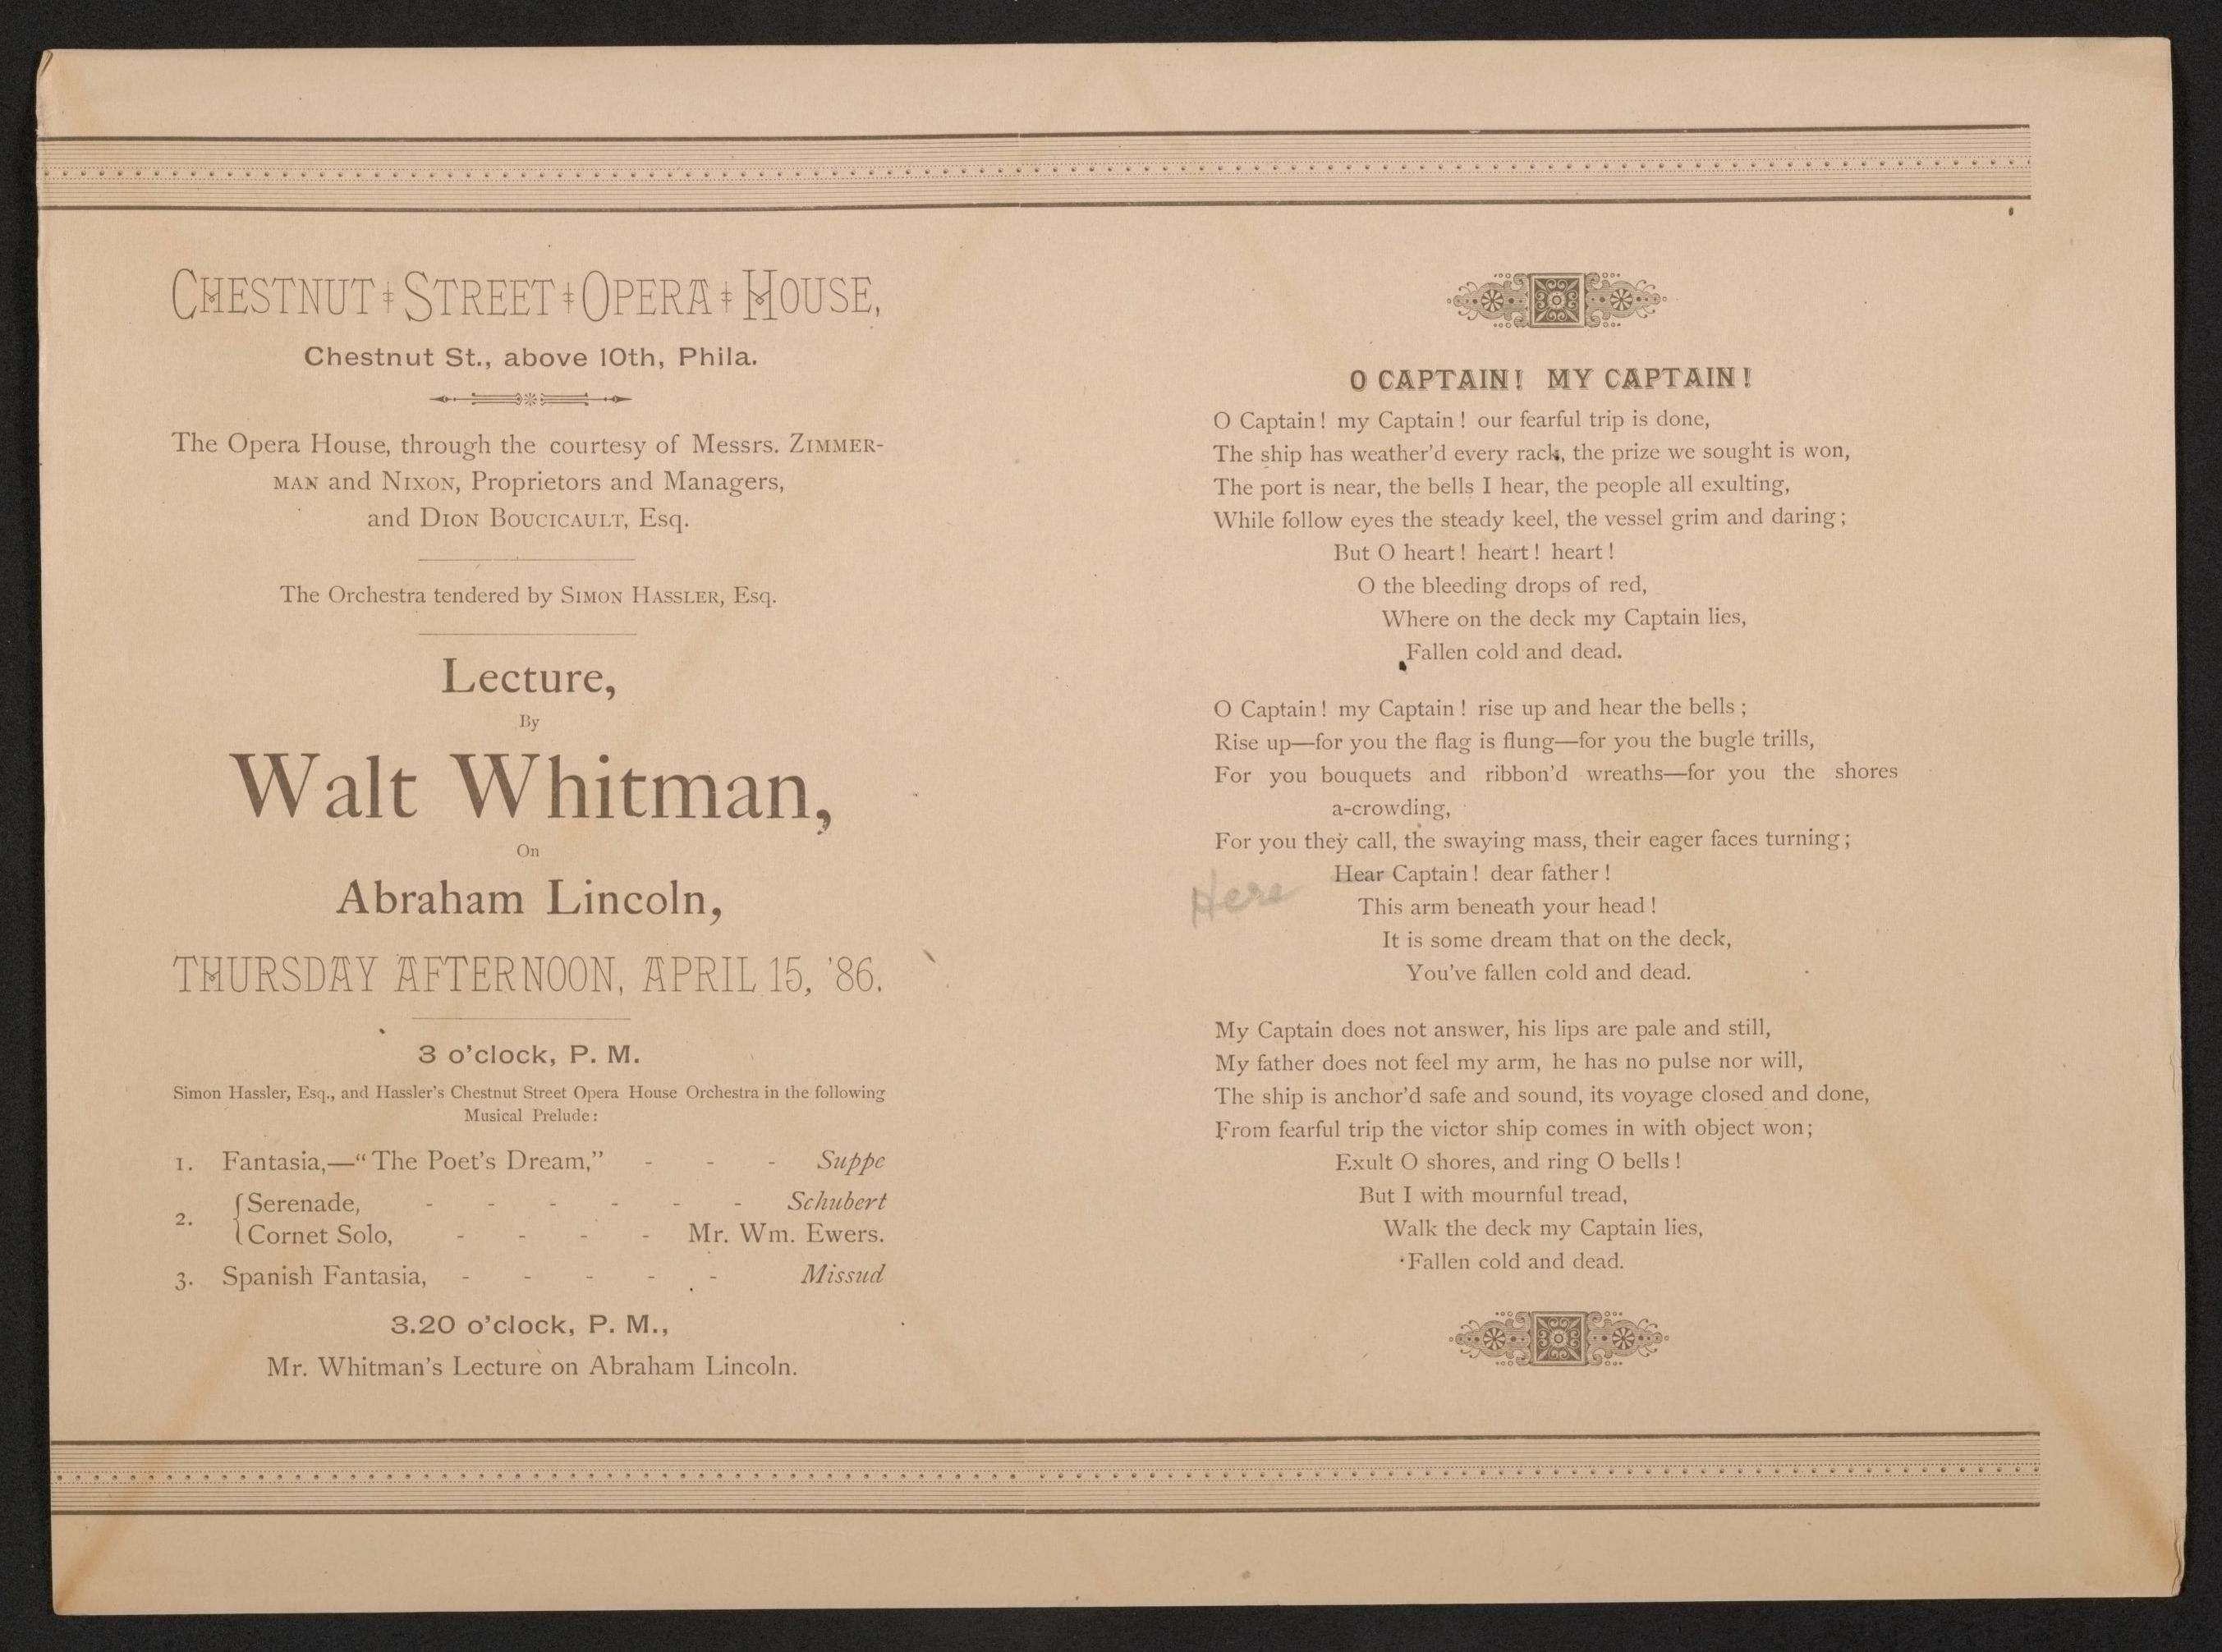 CHESTNUT STREET OPERA HOUSE,
Chestnut St., above 10th, Phila.
The Opera House, through the courtesy of Messrs. ZIMMER-
MAN and NIXON, Proprietors and Managers,
and DION BOUCICAULT, Esq.
The Orchestra tendered by SIMON HASSLER, Esq.
Lecture,
By
Walt Whitman,
On
Abraham Lincoln,
THURSDAY AFTERNOON, APRIL 15, '86.
3 o'clock, P. M.
Simon Hassler, Esq., and Hassler's Chestnut Street Opera House Orchestra in the following
Musical Prelude:
1. Fantasia,—“The Poet's Dream,” - - - Suppe
2. { Serenade, - - - - - - Schubert
Cornet Solo, - - - - Mr. Wm. Ewers.
3. Spanish Fantasia, - - - - - Missud
3.20 o'clock, P. M.,
Mr. Whitman's Lecture on Abraham Lincoln.
O CAPTAIN! MY CAPTAIN!
O Captain! my Captain! our fearful trip is done,
The ship has weather'd every rack, the prize we sought is won,
The port is near, the bells I hear, the people all exulting,
While follow eyes the steady keel, the vessel grim and daring;
But O heart! heart! heart!
O the bleeding drops of red,
Where on the deck my Captain lies,
Fallen cold and dead.
O Captain! my Captain! rise up and hear the bells;
Rise up—for you the flag is flung—for you the bugle trills,
For you bouquets and ribbon'd wreaths—for you the shores
a-crowding,
For you they call, the swaying mass, their eager faces turning;
Hear Captain! dear father!
Here
This arm beneath your head!
It is some dream that on the deck,
You've fallen cold and dead.
My Captain does not answer, his lips are pale and still,
My father does not feel my arm, he has no pulse nor will,
The ship is anchor'd safe and sound, its voyage closed and done,
From fearful trip the victor ship comes in with object won;
Exult O shores, and ring O bells!
But I with mournful tread,
Walk the deck my Captain lies,
Fallen cold and dead.